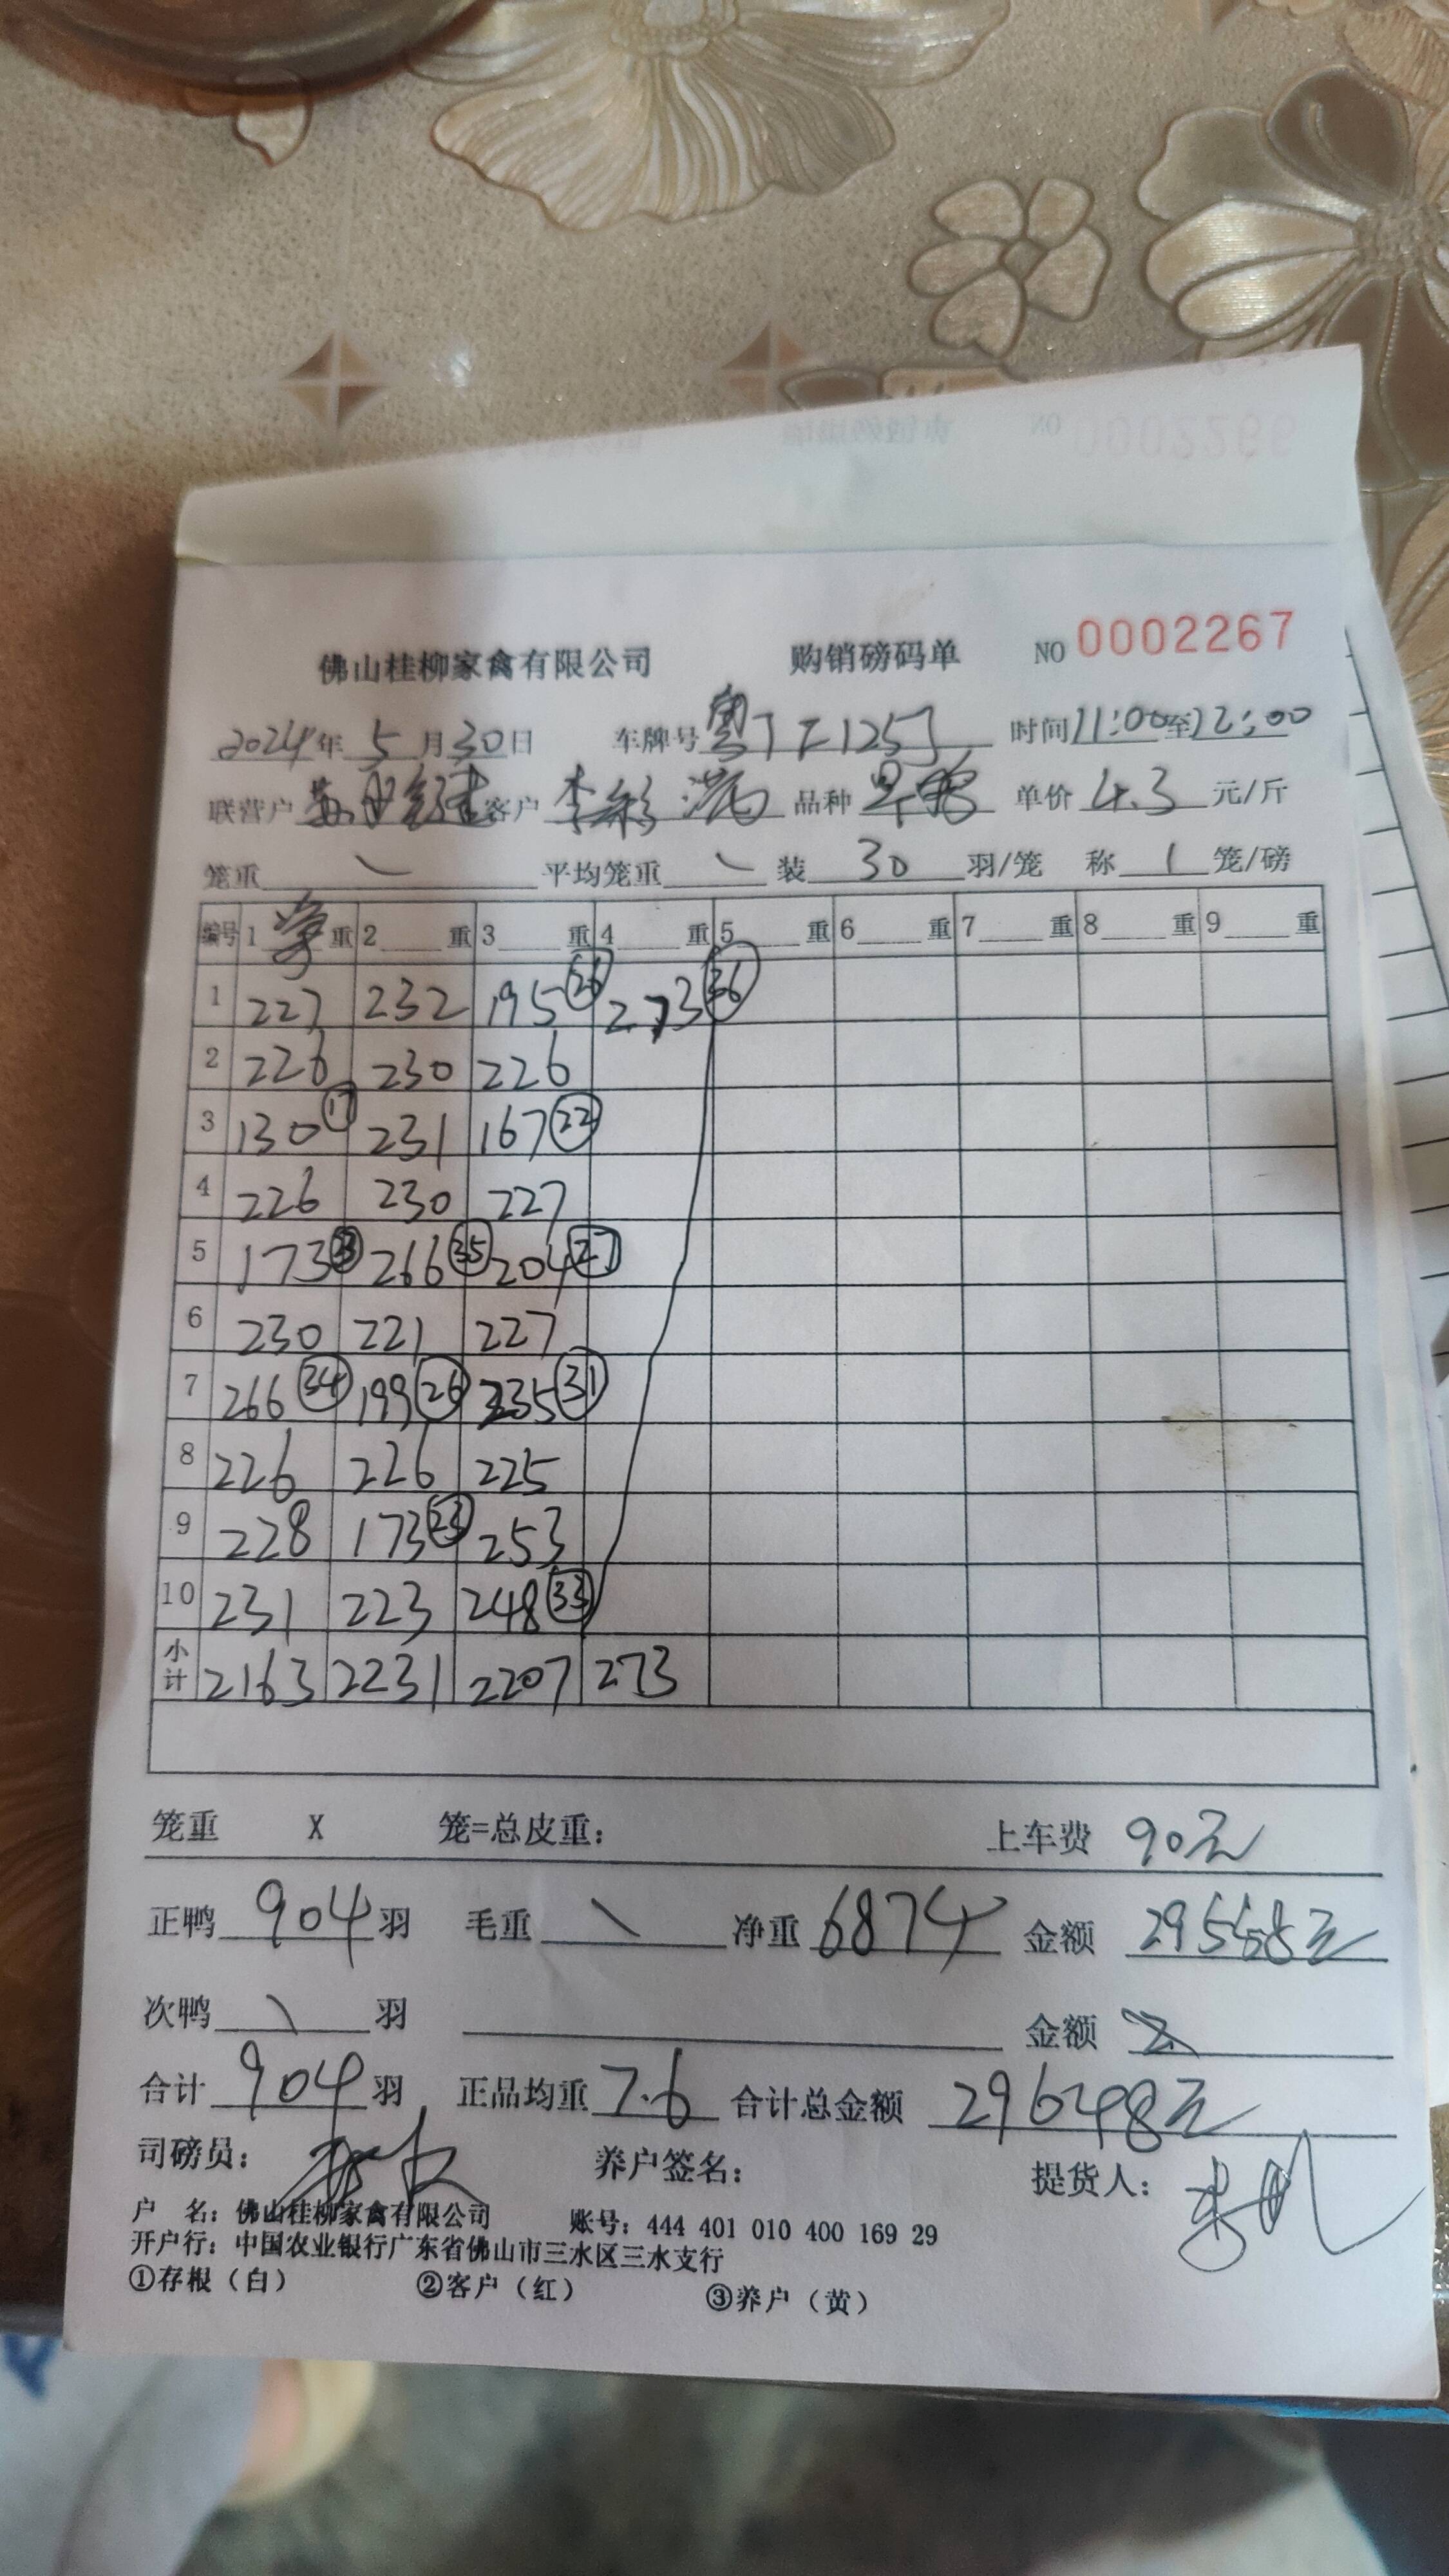 佛山桂柳家禽有限公司 购销磅码单 NO 0002267
2024年 5月30日 车牌号 粤 时间11:00至12:00
联营户 客户 李彩 品种 单价 4.3 元/斤
笼重 \ 平均笼重 \ 装 30 羽/笼 称 1 笼/磅
编号 1 净 重 2 重 3 重 4 重 5 重 6 重 7 重 8 重 9 重
1 227 232 195 26 273 36
2 226 230 226
3 130 17 231 167 22
4 226 230 227
5 173 266 35 204 27
6 230 221 227
7 266 34 199 26 235 31
8 226 226 225
9 228 173 23 253
10 231 223 248 33
小计 2163 2231 2207 273
笼重 X 笼=总皮重: 上车费 90元
正鸭 904 羽 毛重 \ 净重 6874 金额 29558元
次鸭 \ 羽 金额
合计 904 羽 正品均重 7.6 合计总金额 29648元
司磅员: 养户签名: 提货人:
户 名: 佛山桂柳家禽有限公司 账号: 444 401 010 400 169 29
开户行: 中国农业银行广东省佛山市三水区三水支行
①存根（白） ②客户（红） ③养户（黄）